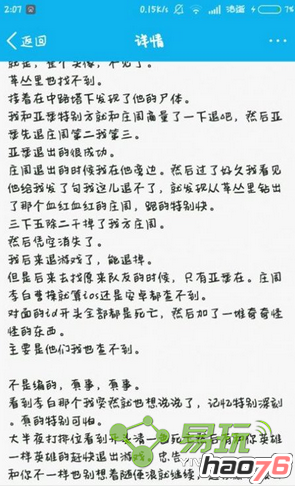 2:07
0.15K/s
5%
返回
详情
就是，整个头像，不见了。
草丛里也找不到。
接着在中路塔下发现了他的尸体。
我和亚瑟特别方就和庄周商量了一下退吧，然后亚
瑟先退庄周第二我第三。
亚瑟退出的很成功。
庄周退出的时候我在他旁边。然后过了好久我看见
他给我发了句我这儿退不了，就发现从草丛里钻出
了那个血红血红的庄周，跑的特别快。
三下五除二干掉了我方庄周。
然后凭空消失了。
我后来退游戏了，能退掉。
但是后来去找原来队友的时候，只有亚瑟在。庄周
李白曹操就算ios还是安卓都查不到。
对面的id开头全部都是死亡，然后加了一堆奇奇怪
怪的东西。
主要是他们我也查不到。
不是编的，真事，真事。
看到李白那个我突然就也想说说了，记忆特别深刻
。真的特别可怕。
大半夜打排位看到开头清一色死亡然后有和你英雄
一样英雄的赶快退出游戏，忠告
和你不一样也别想着随便没就继续
易玩
hao76
.com